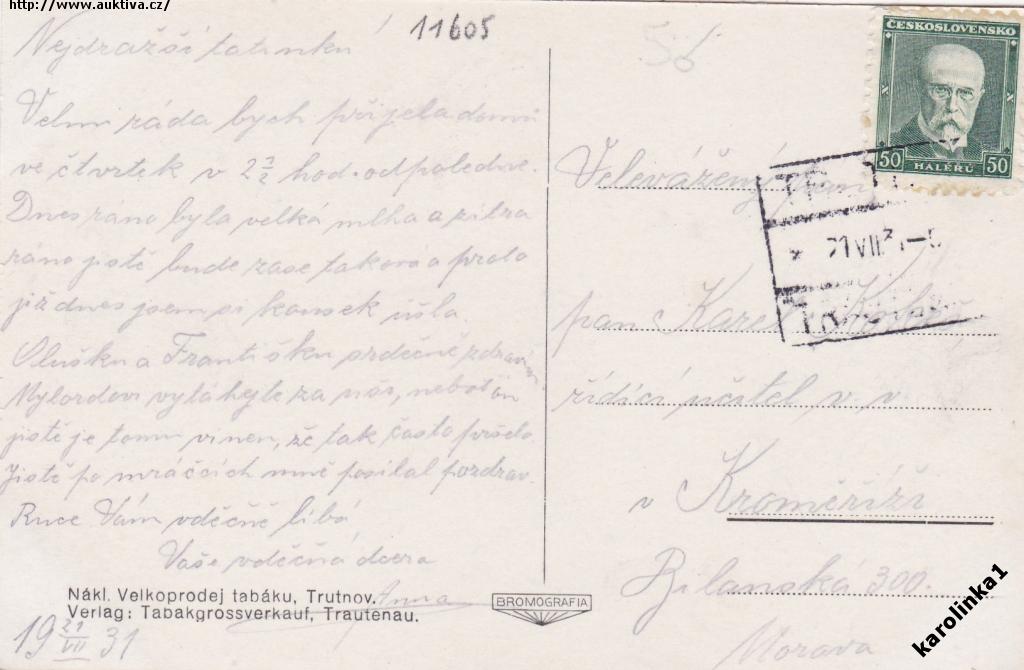 http://www.auktiva.cz/
11605
56
Nejdražší tatínku!
Velmi ráda bych přijela domů
ve čtvrtek v 2 hod. odpoledne.
Dnes ráno byla velká mlha a zítra
ráno jistě bude zase taková a proto
již dnes jsem si kousek ušla.
Olušku a Františku srdečně zdravím
Mylordovi vytahejte za nás, neboť on
jistě je tomu vinen, že tak často pršelo.
Jistě po mráčcích mně posílal pozdrav.
Ruce Vám vděčně líbá
Vaše vděčná dcera
Anna
19 21/VII 31
Nákl. Velkoprodej tabáku, Trutnov.
Verlag: Tabakgrossverkauf, Trautenau.
BROMOGRAFIA
ČESKOSLOVENSKO
50 HALÉŘŮ 50
21 VII 31
Velevážený pan
pan Karel
řídící učitel v. v.
v Kroměříži
Bílanská 300.
Morava
karolinka1